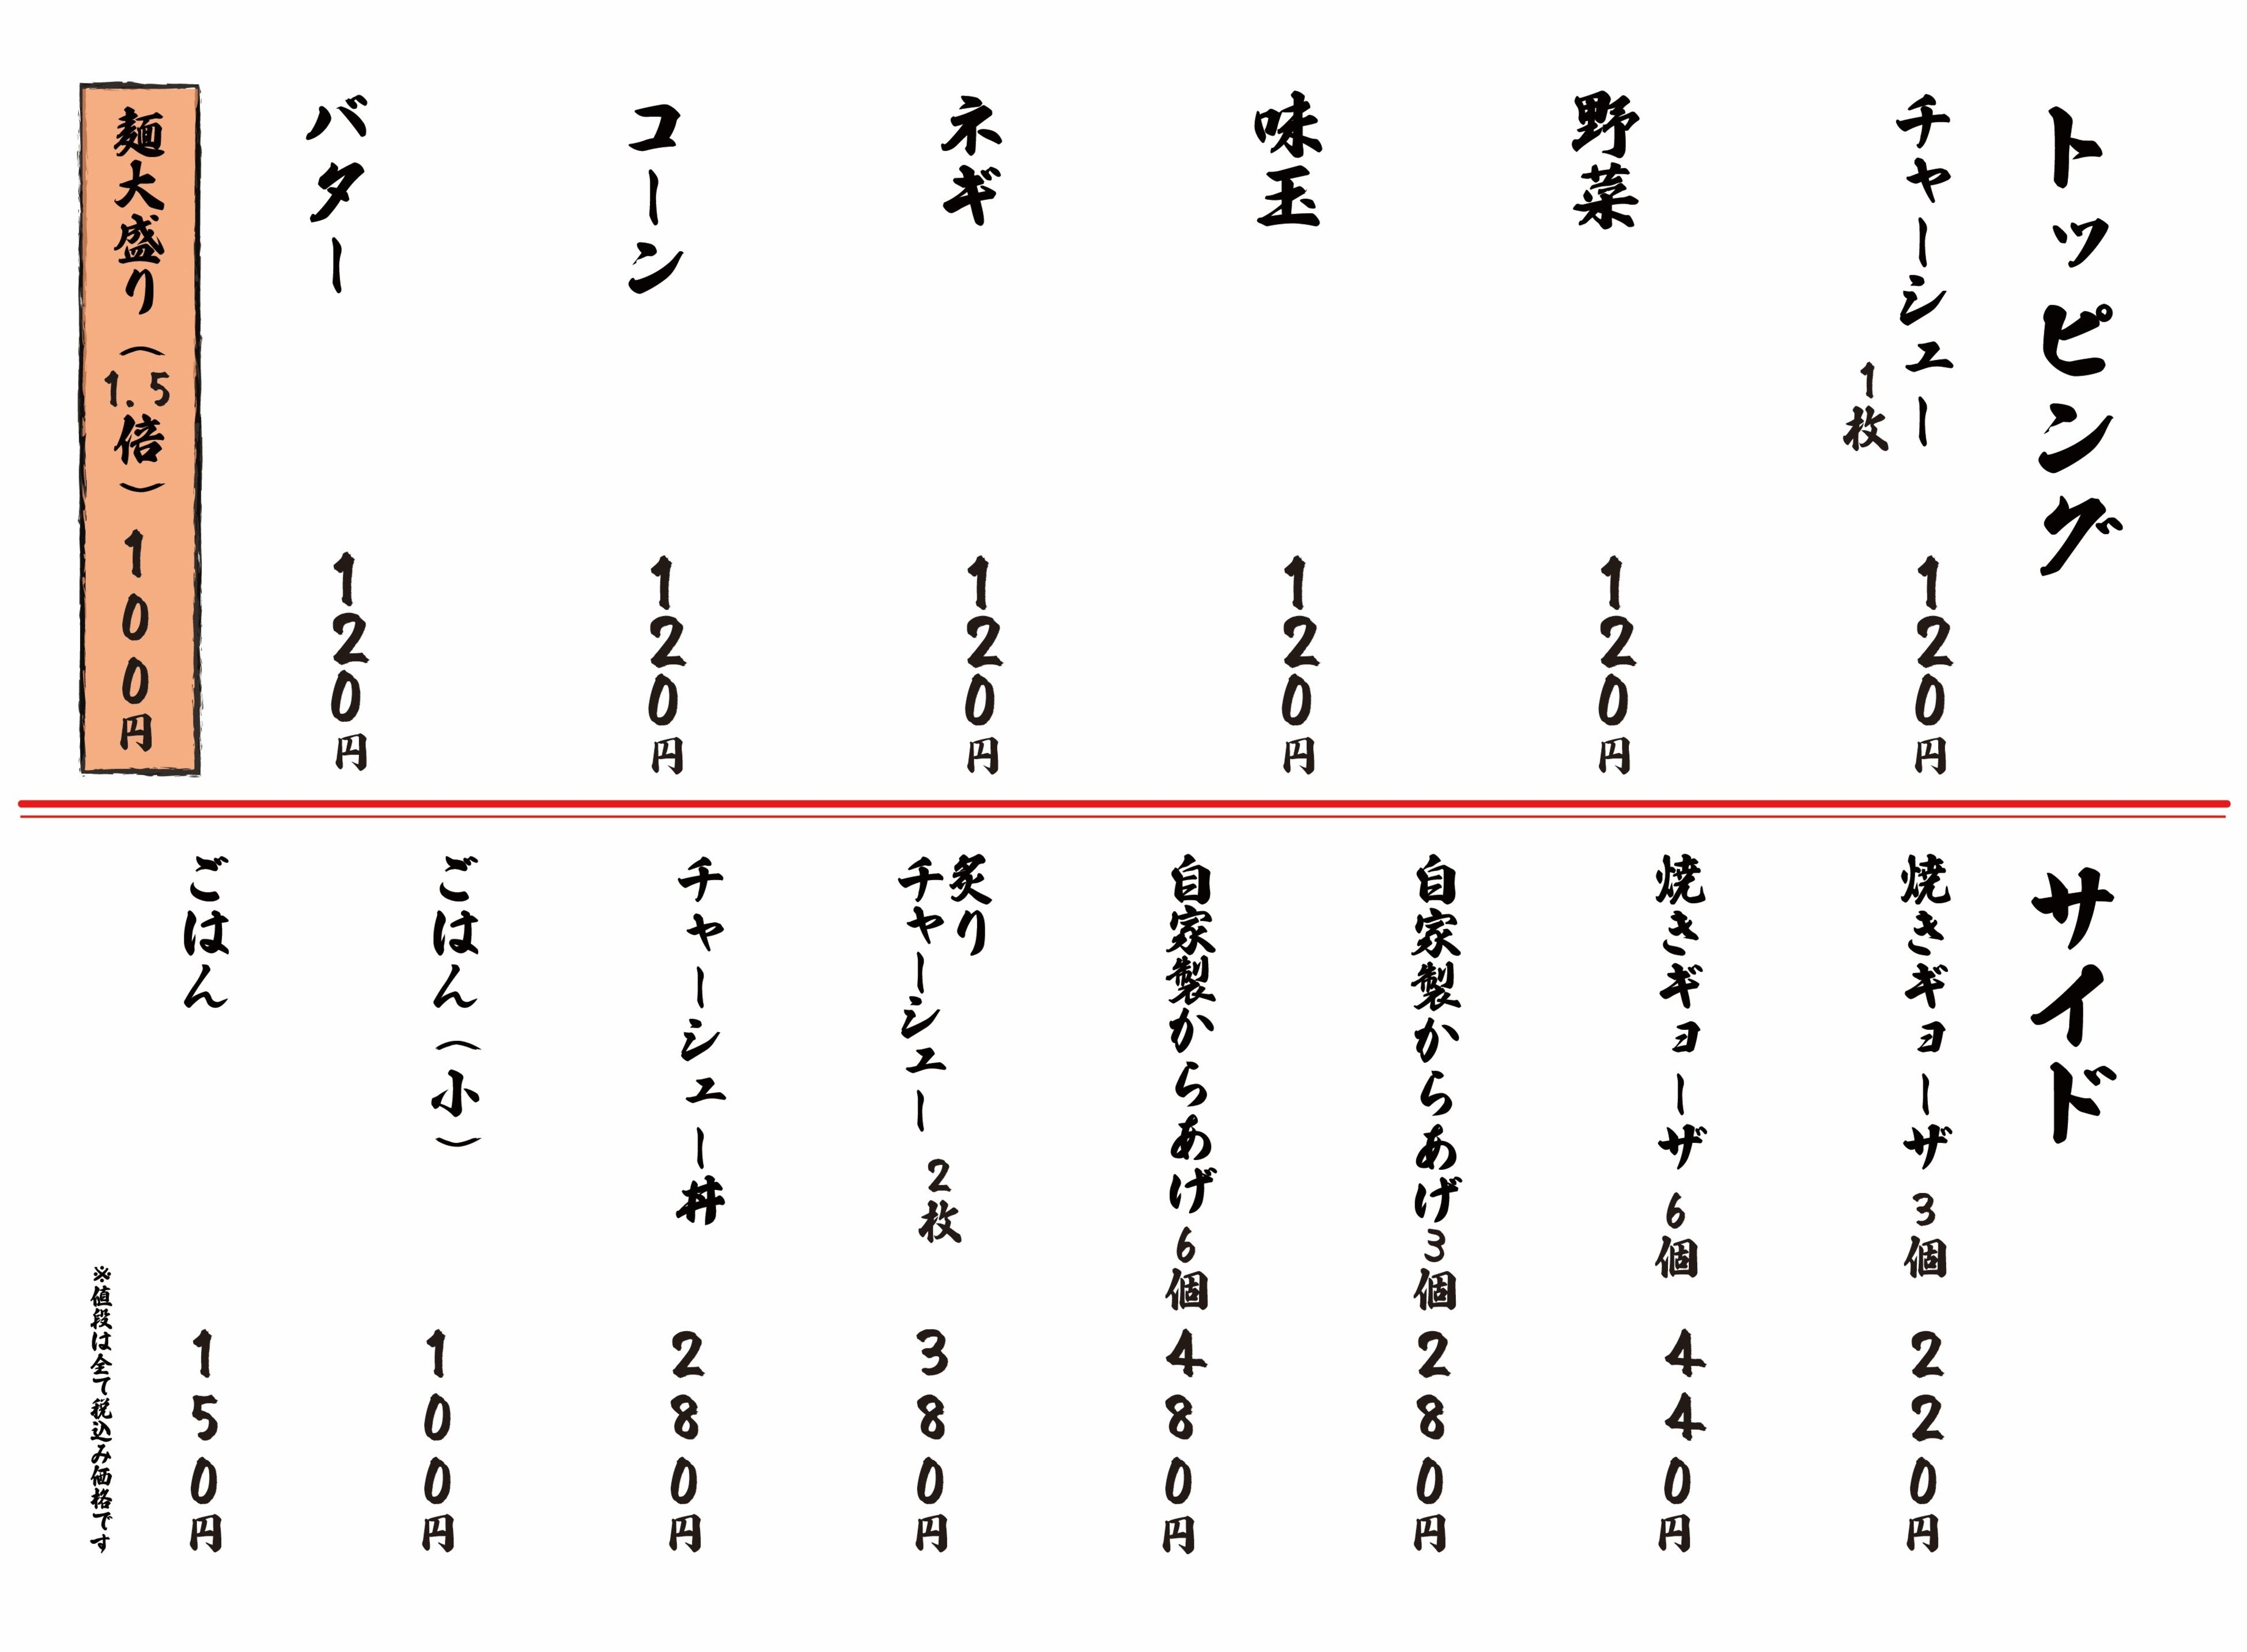 トッピング
チャーシュー
1枚
120円
野菜
120円
味玉
120円
ネギ
120円
コーン
120円
バター
120円
麺大盛り（1.5倍）100円
サイド
焼きギョーザ 3個 220円
焼きギョーザ 6個 440円
自家製からあげ 3個 280円
自家製からあげ 6個 480円
炙り
チャーシュー 2枚 380円
チャーシュー丼 280円
ごはん（小） 100円
ごはん 150円
※値段は全て税込み価格です